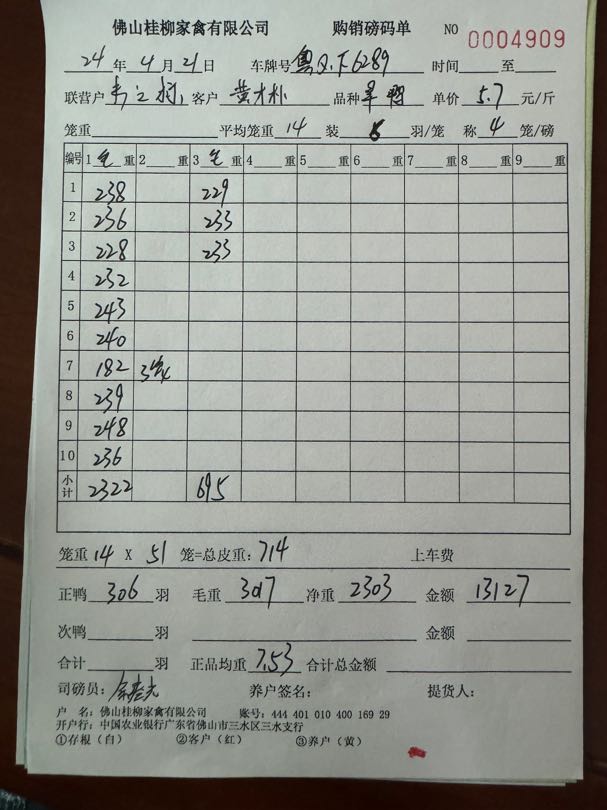 佛山桂柳家禽有限公司 购销磅码单 NO 0004909
24 年 4 月 21 日 车牌号 时间 至
联营户 客户 品种 单价 5.7 元/斤
笼重 平均笼重 14 装 6 羽/笼 称 4 笼/磅
编号 1 毛 重 2 重 3 毛 重 4 重 5 重 6 重 7 重 8 重 9 重
1 238 229
2 236 233
3 228 233
4 232
5 243
6 240
7 182 3笼
8 239
9 248
10 236
小计 2322 695
笼重 14 X 51 笼=总皮重: 714 上车费
正鸭 306 羽 毛重 3017 净重 2303 金额 13127
次鸭 羽 金额
合计 羽 正品均重 7.53 合计总金额
司磅员: 养户签名: 提货人:
户 名: 佛山桂柳家禽有限公司 账号: 444 401 010 400 169 29
开户行: 中国农业银行广东省佛山市三水区三水支行
①存根(白) ②客户(红) ③养户(黄)